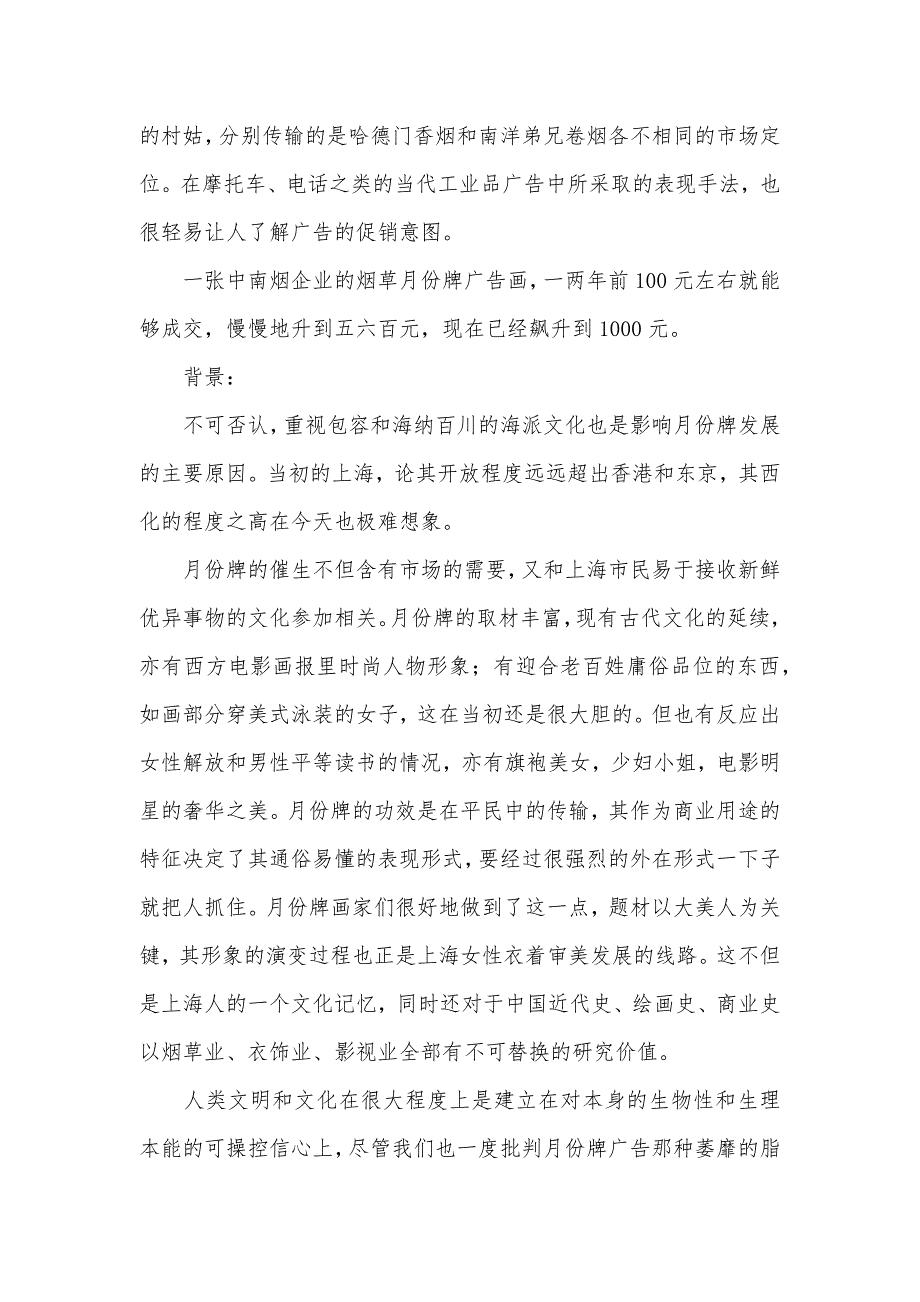 的村姑，分别传输的是哈德门香烟和南洋弟兄卷烟各不相同的市场定
位。在摩托车、电话之类的当代工业品广告中所采取的表现手法，也
很轻易让人了解广告的促销意图。
一张中南烟企业的烟草月份牌广告画，一两年前 100 元左右就能
够成交，慢慢地升到五六百元，现在已经飙升到 1000 元。
背景：
不可否认，重视包容和海纳百川的海派文化也是影响月份牌发展
的主要原因。当初的上海，论其开放程度远远超出香港和东京，其西
化的程度之高在今天也极难想象。
月份牌的催生不但含有市场的需要，又和上海市民易于接收新鲜
优异事物的文化参加相关。月份牌的取材丰富，现有古代文化的延续，
亦有西方电影画报里时尚人物形象；有迎合老百姓庸俗品位的东西，
如画部分穿美式泳装的女子，这在当初还是很大胆的。但也有反应出
女性解放和男性平等读书的情况，亦有旗袍美女，少妇小姐，电影明
星的奢华之美。月份牌的功效是在平民中的传输，其作为商业用途的
特征决定了其通俗易懂的表现形式，要经过很强烈的外在形式一下子
就把人抓住。月份牌画家们很好地做到了这一点，题材以大美人为关
键，其形象的演变过程也正是上海女性衣着审美发展的线路。这不但
是上海人的一个文化记忆，同时还对于中国近代史、绘画史、商业史
以烟草业、衣饰业、影视业全部有不可替换的研究价值。
人类文明和文化在很大程度上是建立在对本身的生物性和生理
本能的可操控信心上，尽管我们也一度批判月份牌广告那种萎靡的脂